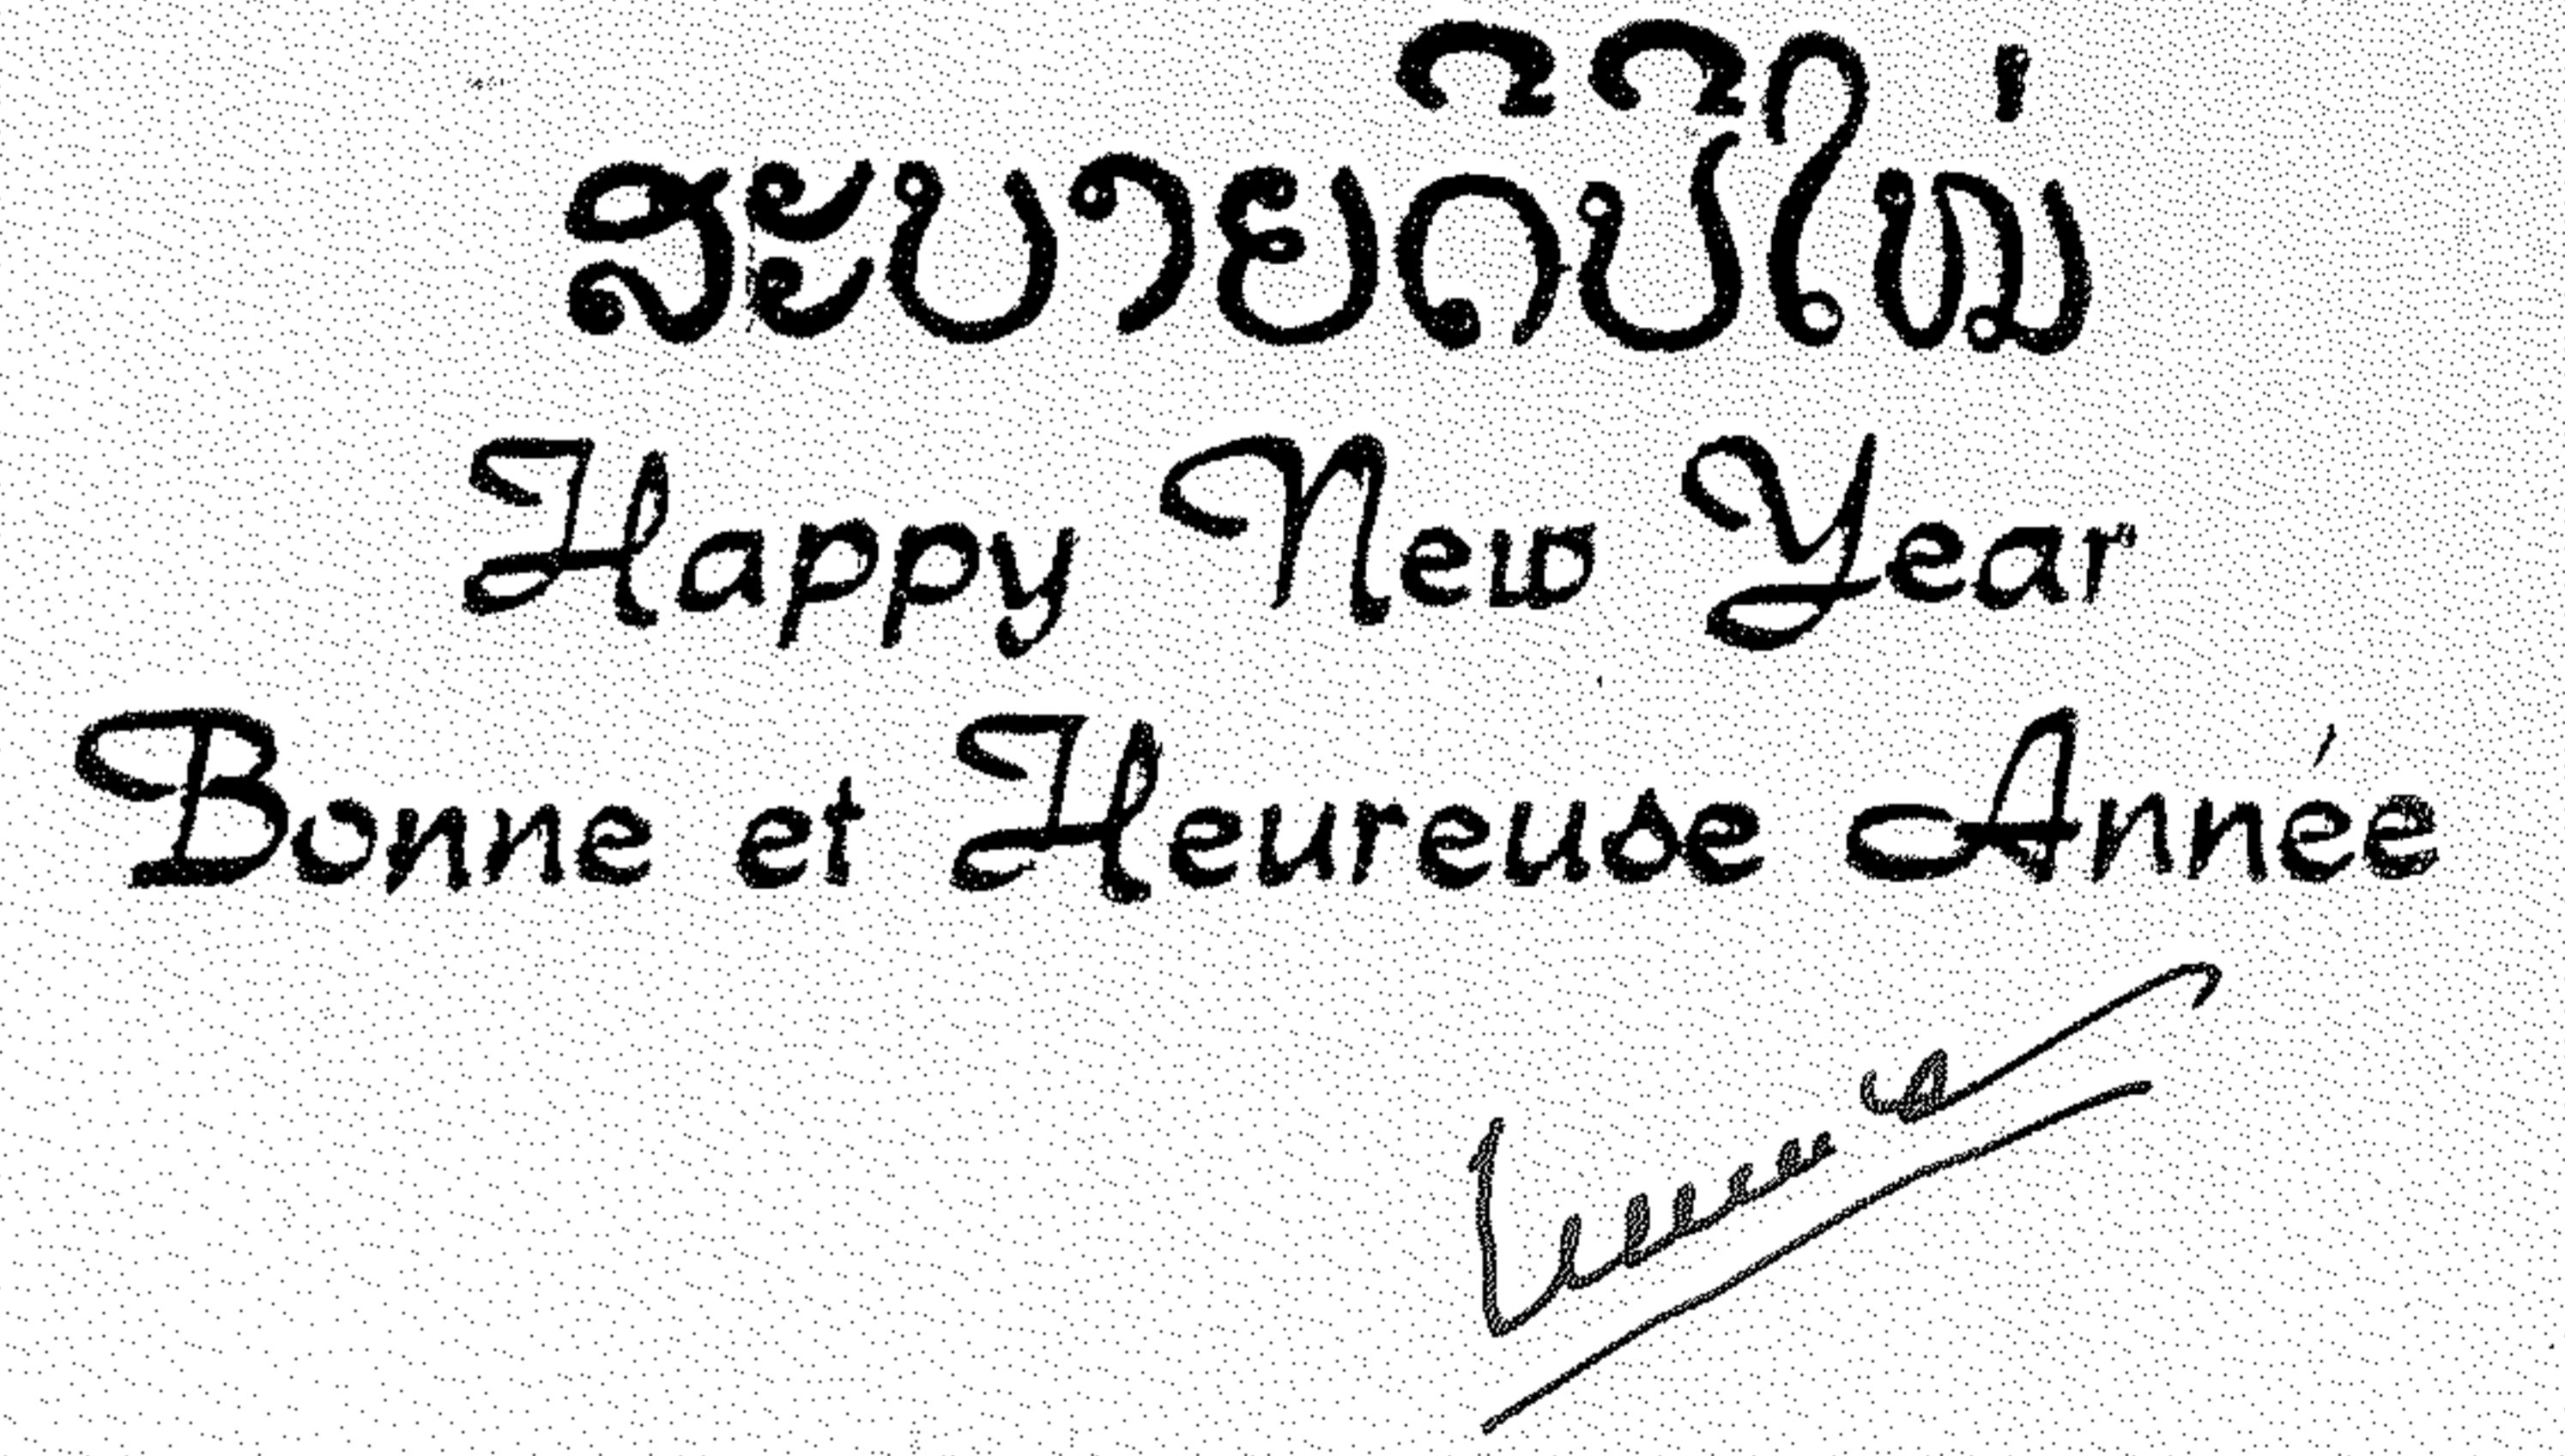 ສະບາຍດີປີໃໝ່
Happy New Year
Bonne et Heureuse Année